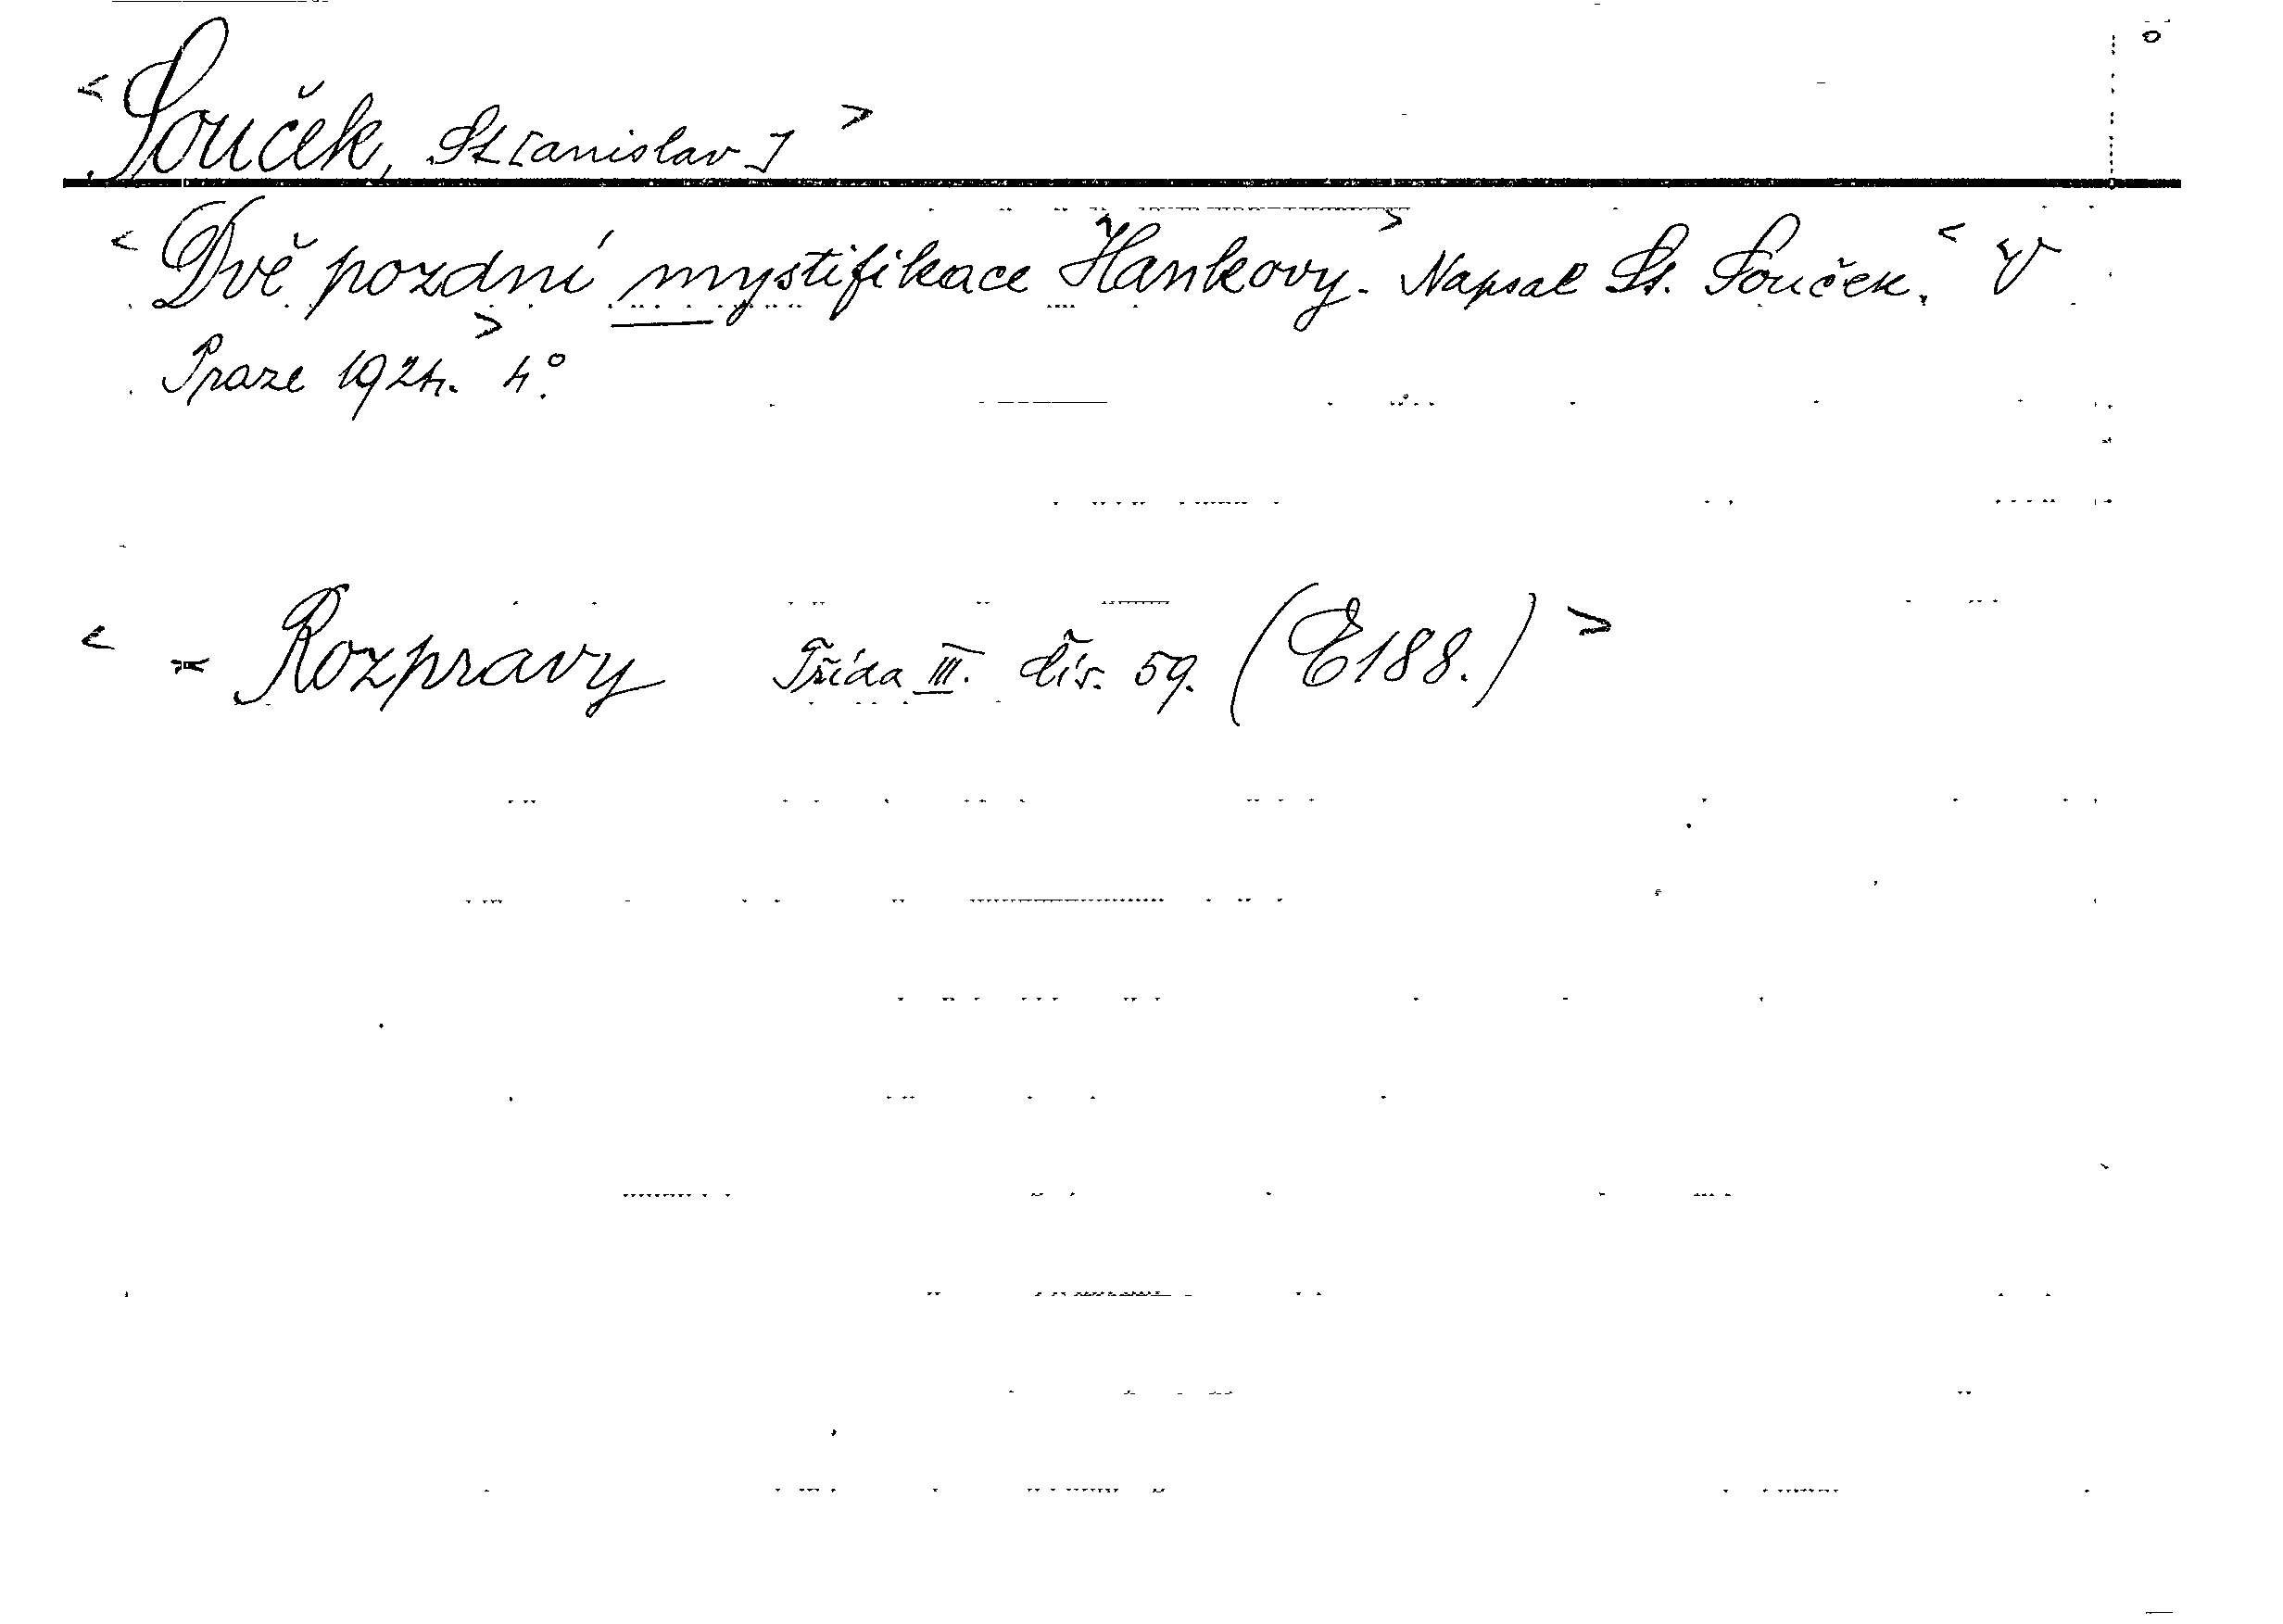 < Souček, St[anislav] >
< Dvě pozdní mystifikace Hankovy. > Napsal St. Souček. < V
Praze 1924. > 4°.
< = Rozpravy Třída III. čís. 59. (E188.) >